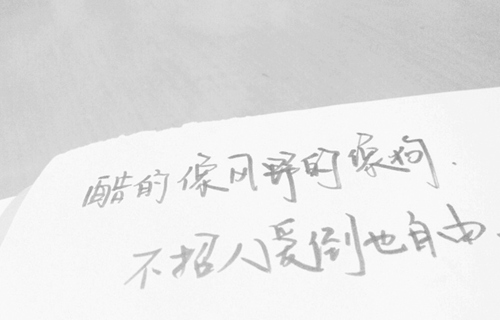 酷的像风野的像狗.
不招人爱倒也自由.